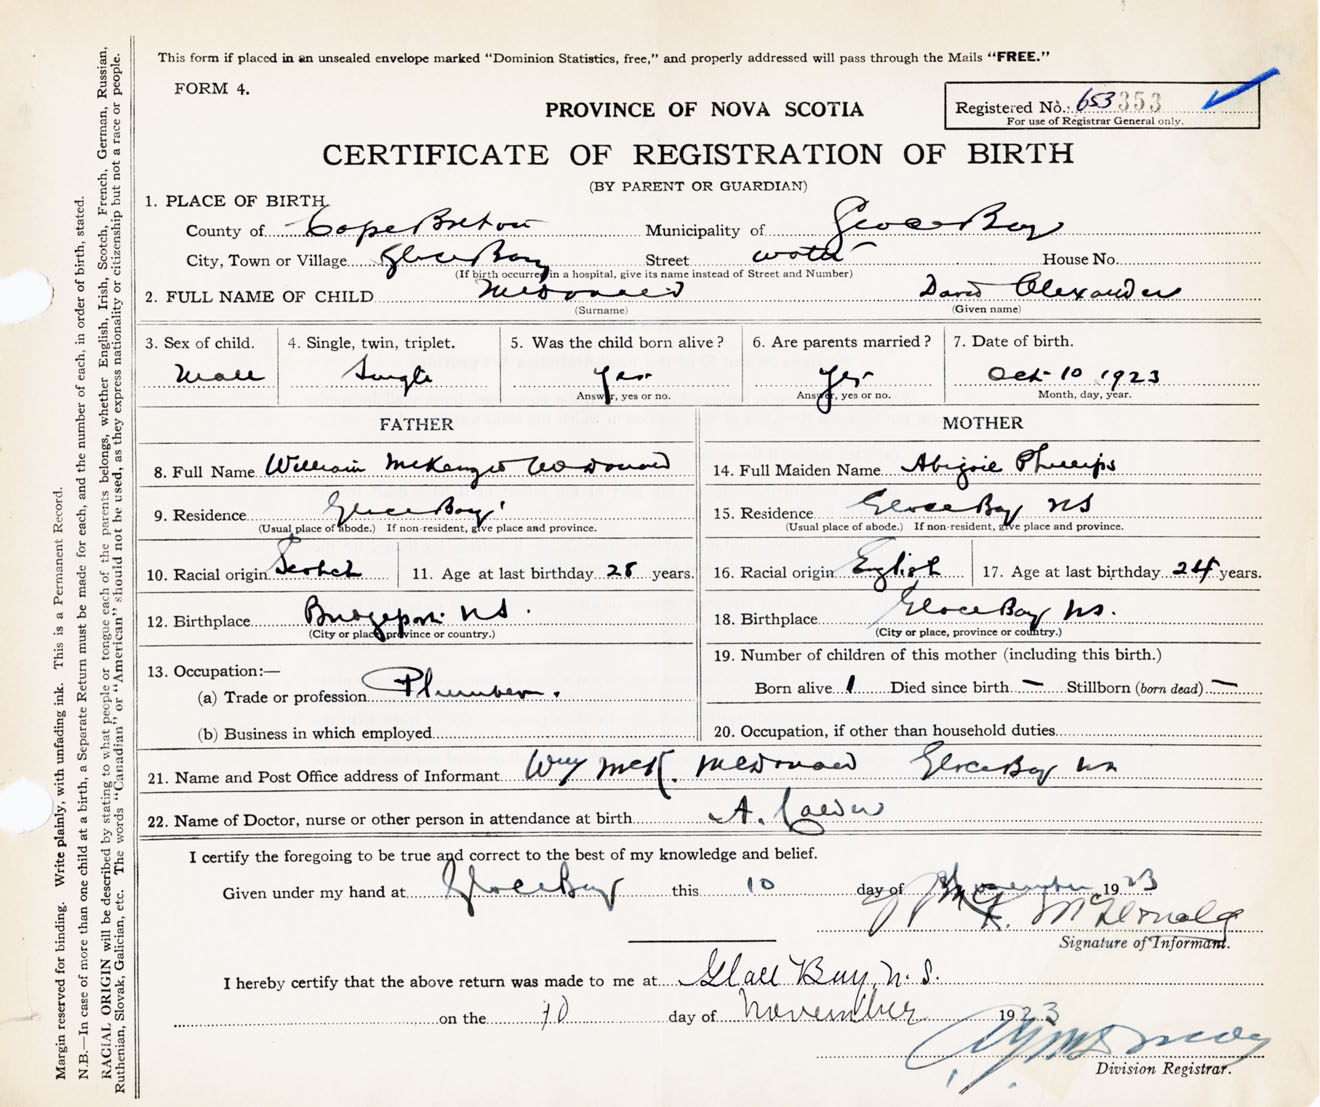 This form if placed in an unsealed envelope marked "Dominion Statistics, free," and properly addressed will pass through the Mails "FREE."
FORM 4.
Registered No. 653 353
For use of Registrar General only.
PROVINCE OF NOVA SCOTIA
CERTIFICATE OF REGISTRATION OF BIRTH
(BY PARENT OR GUARDIAN)
1. PLACE OF BIRTH.
County of Cape Breton Municipality of Glace Bay
City, Town or Village Glace Bay Street House No.
(If birth occurred in a hospital, give its name instead of Street and Number)
2. FULL NAME OF CHILD McDonald David Alexander
(Surname) (Given name)
3. Sex of child. 4. Single, twin, triplet. 5. Was the child born alive? 6. Are parents married? 7. Date of birth.
Male Single Yes Yes Oct 10 1923
Answer, yes or no. Answer, yes or no. Month, day, year.
FATHER MOTHER
8. Full Name William McKenzie McDonald 14. Full Maiden Name Abigail Phillips
9. Residence Glace Bay 15. Residence Glace Bay NS
(Usual place of abode.) If non-resident, give place and province. (Usual place of abode.) If non-resident, give place and province.
10. Racial origin Scotch 11. Age at last birthday 28 years. 16. Racial origin English 17. Age at last birthday 24 years.
12. Birthplace Bridgeport NS. 18. Birthplace Glace Bay NS.
(City or place, province or country.) (City or place, province or country.)
13. Occupation:— 19. Number of children of this mother (including this birth.)
(a) Trade or profession Plumber. Born alive 1 Died since birth — Stillborn (born dead) —
(b) Business in which employed 20. Occupation, if other than household duties
21. Name and Post Office address of Informant Wm McK. McDonald Glace Bay NS
22. Name of Doctor, nurse or other person in attendance at birth A. Calder
I certify the foregoing to be true and correct to the best of my knowledge and belief.
Given under my hand at Glace Bay this 10 day of November 1923
McK. McDonald
Signature of Informant.
I hereby certify that the above return was made to me at Glace Bay, N.S.
on the 10 day of November 1923
Division Registrar.
Margin reserved for binding. Write plainly, with unfading ink. This is a Permanent Record.
N.B.—In case of more than one child at a birth, a Separate Return must be made for each, and the number of each, in order of birth, stated.
RACIAL ORIGIN will be described by stating to what people or tongue each of the parents belongs, whether English, Irish, Scotch, French, German, Russian,
Ruthenian, Slovak, Galician, etc. The words "Canadian" or "American" should not be used, as they express nationality or citizenship but not a race or people.